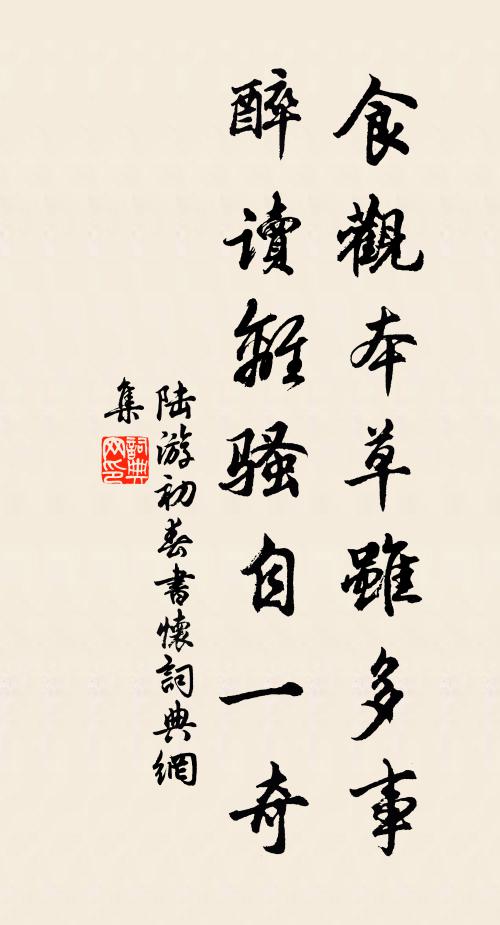 食觀本草雖多事
醉读離骚自一奇
陆游初春書懷詞典網
集
詞典网印